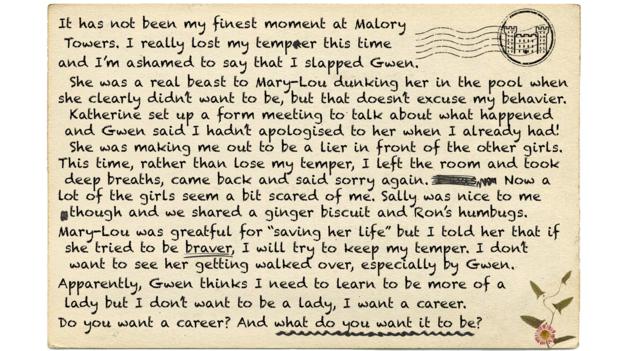 It has not been my finest moment at Malory
Towers. I really lost my temper this time
and I'm ashamed to say that I slapped Gwen.
She was a real beast to Mary-Lou dunking her in the pool when
she clearly didn't want to be, but that doesn't excuse my behavier.
Katherine set up a form meeting to talk about what happened
and Gwen said I hadn't apologised to her when I already had!
She was making me out to be a lier in front of the other girls.
This time, rather than lose my temper, I left the room and took
deep breaths, came back and said sorry again. Now a
lot of the girls seem a bit scared of me. Sally was nice to me
though and we shared a ginger biscuit and Ron's humbugs.
Mary-Lou was greatful for "saving her life" but I told her that if
she tried to be braver, I will try to keep my temper. I don't
want to see her getting walked over, especially by Gwen.
Apparently, Gwen thinks I need to learn to be more of a
lady but I don't want to be a lady, I want a career.
Do you want a career? And what do you want it to be?